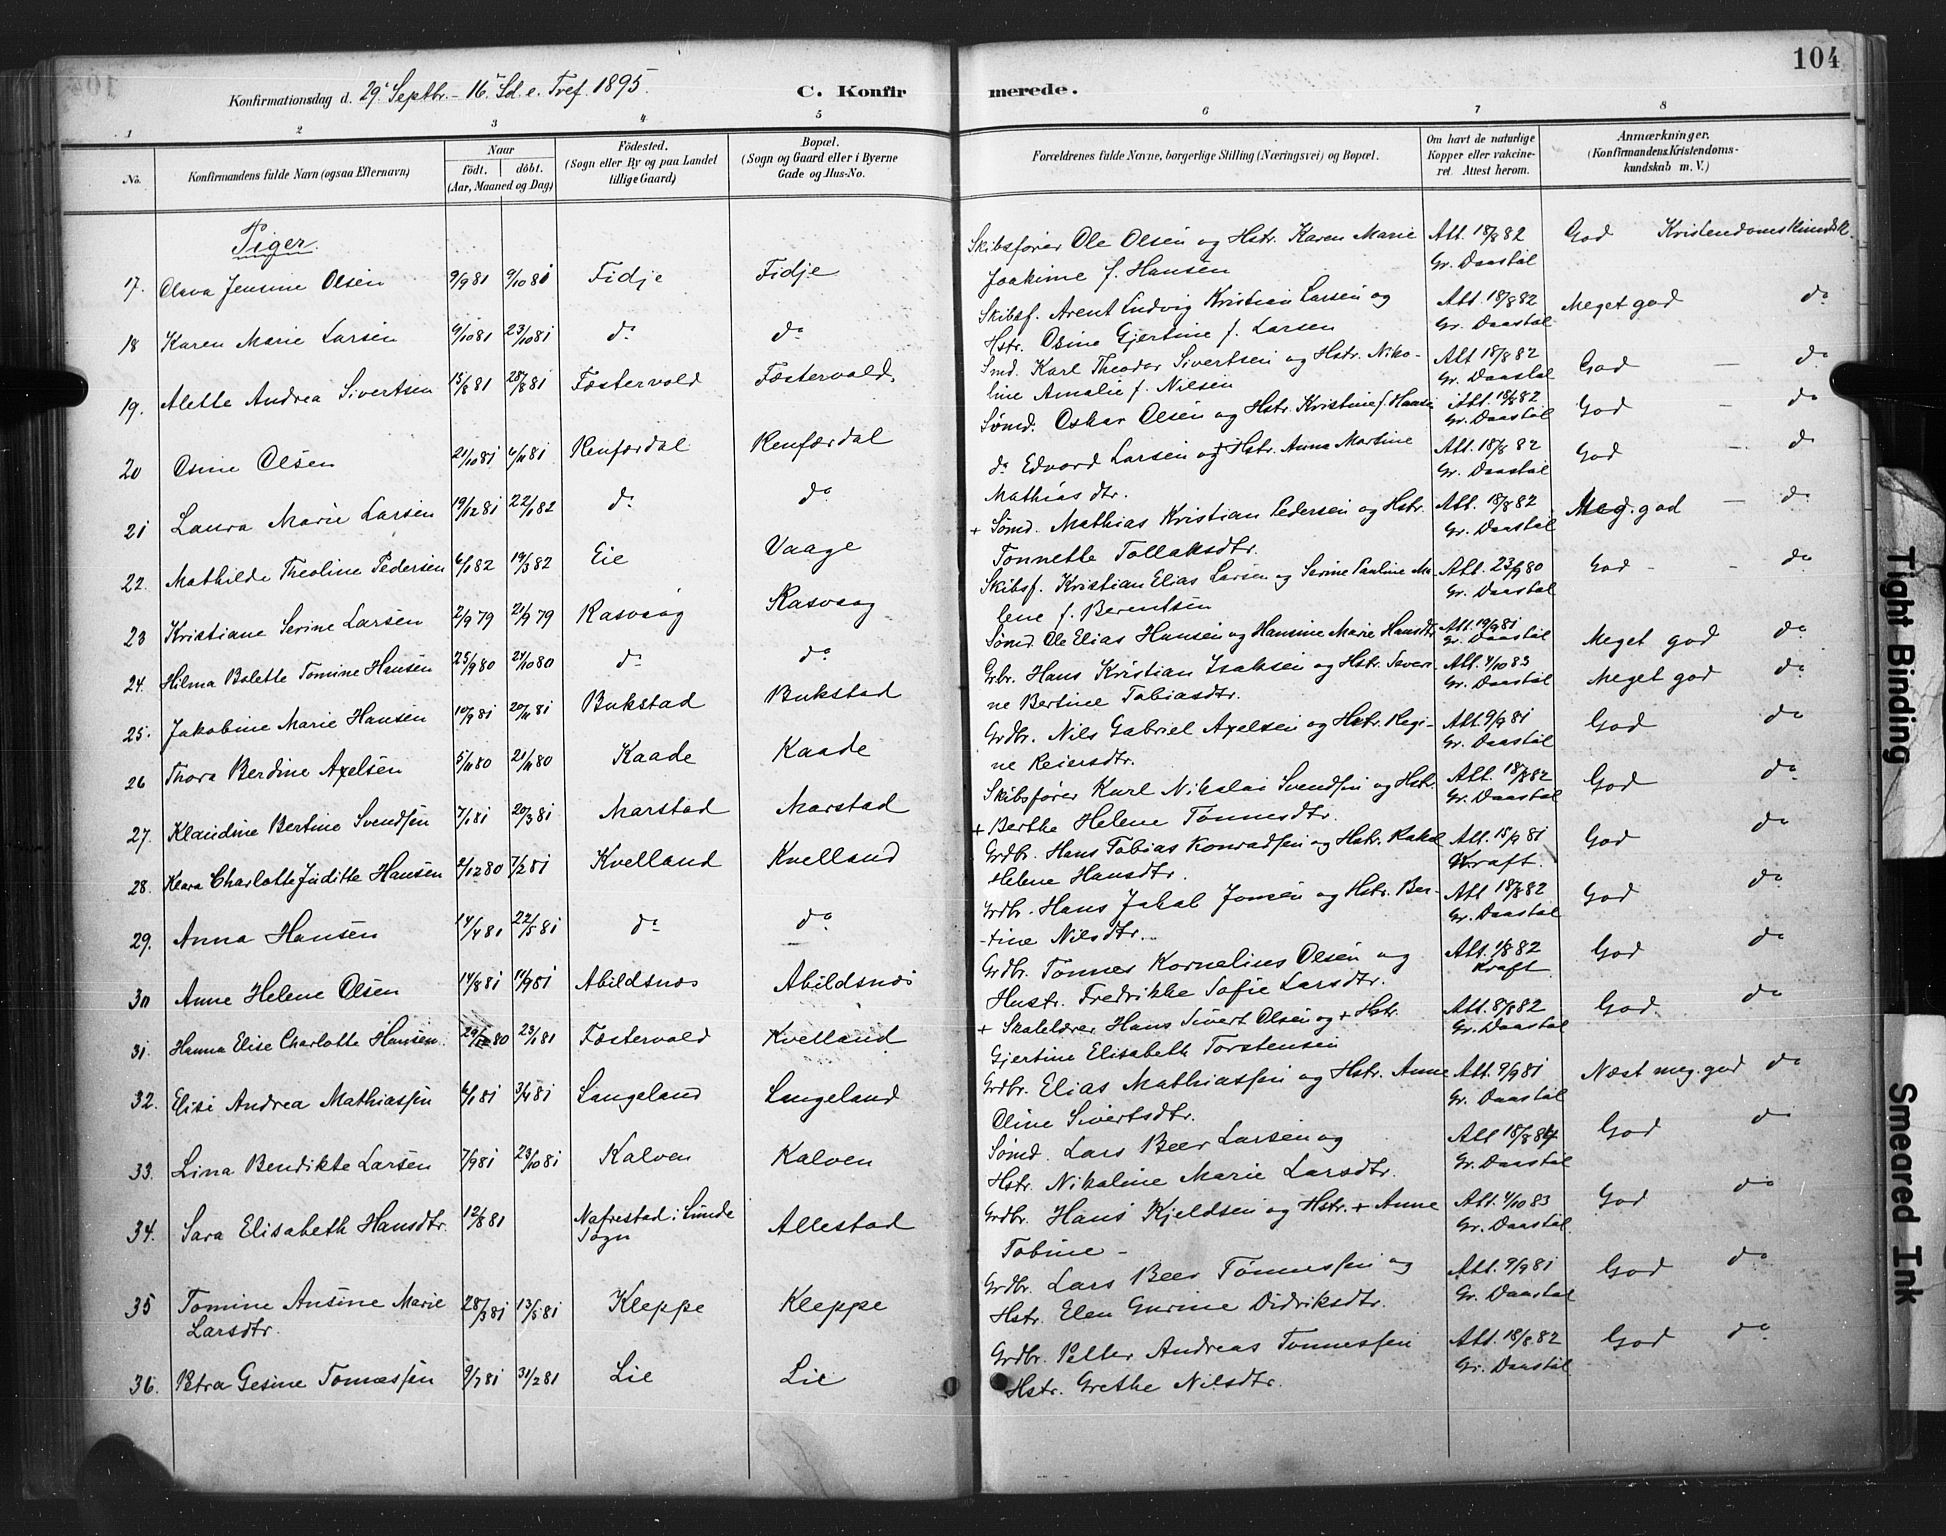 104
Konfirmationsdag d. 29' Septbr. - 16' Sd. e. Tref. 1895.
C. Konfirmerede.
1 2 3 4 5 6 7 8
No.
Konfirmandens fulde Navn (ogsaa Efternavn)
Naar
födt. döbt.
(Aar, Maaned og Dag)
Födested.
(Sogn eller By og paa Landet
tillige Gaard)
Bopæl.
(Sogn og Gaard eller i Byerne
Gade og Hus-No.
Forældrenes fulde Navne, borgerlige Stilling (Næringsvei) og Bopæl.
Om havt de naturlige
Kopper eller vakcine-
ret. Attest herom.
Anmærkninger.
(Konfirmandens Kristendoms-
kundskab m. V.)
Piger.
17. Olava Jensine Olsen 9/9 81 9/10 81 Fidje Fidje
Skibsfører Ole Olsen og Hstr. Karen Marie Att. 18/8 82 God Kristendomskundsk.
Joakime f. Hansen Gr. Daastøl
18 Karen Marie Larsen 9/10 81 23/10 81 do do
Skibsf. Arent Ludvig Kristian Larsen og Att. 18/8 82 Meget god do
Hstr. Osine Gjertine f. Larsen Gr. Daastøl
19. Alette Andrea Sivertsen 15/8 81 28/8 81 Fæstervold Fæstervold.
Smd. Karl Theodor Sivertsen og Hstr. Niko- Att 18/8 82 God — do
line Amalie f. Nilsen Gr. Daastøl
20 Osine Olsen 21/10 81 6/11 81 Renfærdal Renfærdal
Sømd. Oskar Olsen og Hstr. Kristine f. Hansen Att. 18/8 82 God — do
Gr. Daastøl
21 Laura Marie Larsen 19/12 81 22/1 82 do do
do Edvard Larsen og + Hstr. Anna Martine Att. 18/8 82 God — do
Mathias dtr. Gr. Daastøl
22. Mathilde Theoline Pedersen 6/1 82 19/3 82 Eie Vaage
+ Sømd. Mathias Kristian Pedersen og Hstr. Att. 18/8 82 Meg. god — do
Tonnette Tollaksdtr. Gr. Daastøl
23 Kristiane Serine Larsen 2/9 79 21/9 79 Rasvaag Rasvaag
Skibsf. Kristian Elias Larsen og Serine Pauline Ma- Att. 23/9 80 God - - do
lene f. Berentsen Gr. Daastøl
24. Hilma Bolette Tomine Hansen 25/9 80 24/10 80 do do
Sømd Ole Elias Hansen og Hansine Marie Hansdtr Att. 19/9 81 Meget god do
Gr. Daastøl
25. Jakobine Marie Hansen 10/9 81 20/11 81 Bukstad Bukstad
Gbr. Hans Kristian Isaksen og Hstr. Severi- Att. 4/10 83 Meget god do
ne Bertine Tobiasdtr. Gr. Daastøl
26 Thora Berdine Axelsen 5/11 80 21/11 80 Kaade Kaade
Grdbr. Nils Gabriel Axelsen og Hstr. Regi- Att. 9/9 81 God do
ne Reiersdtr. Gr. Daastøl
27. Klaudine Bertine Svendsen 7/1 81 20/3 81 Marstad Marstad
Skibsfører Karl Nikolai Svendsen og Hstr. Att. 18/8 82 God do
+ Berthe Helene Tønnesdtr. Gr. Daastøl
28. Klara Charlotte Juditte Hansen 2/12 80 7/2 81 Kvelland Kvelland
Grdbr. Hans Tobias Konradsen og Hstr. Rakel Att. 15/9 81 God do
Helene Hansdtr. Kraft.
29. Anna Hansen 14/4 81 22/5 81 do do
Grdbr. Hans Jakob Jonsen og Hstr. Ber- Att 18/8 82 God do
-tine Nilsdtr. Gr. Daastøl
30 Anne Helene Olsen 14/8 81 11/9 81 Abildsnes Abildsnes
Grdbr. Tønnes Kornelius Olsen og Att. 1/8 82 God do
Hustr. Fredrikke Sofie Larsdtr. Kraft
31. Hanna Elise Charlotte Hansen 29/12 80 23/1 81 Fæstervold Kvelland
+ Skolelærer Hans Sivert Olsen og + Hstr. Att. 8/8 82 God. do
Gjertine Elisabeth Torstensen Gr. Daastøl
32. Elise Andrea Mathiassen 6/1 81 3/4 81 Langeland Langeland
Grdbr. Elias Mathiassen og Hstr. Anne Att. 9/9 81 Næst meg. god do
Oline Sivertsdtr. Gr. Daastøl
33. Lina Bendikte Larsen 7/9 81 23/10 81 Kalven Kalven
Sømd. Lars Beer Larsen og Att 18/8 84 God do
Hstr. Nikoline Marie Larsdtr. Gr. Daastøl
34. Sara Elisabeth Hansdtr. 12/8 81 Nafrestad i Lunde Sogn Allestad
Grdbr. Hans Kjeldsen og Hstr. + Anne Att. 4/10 83 God do
Tobine - Gr. Daastøl
35 Tomine Ansine Marie Larsdtr. 28/3 81 13/5 81 Kleppe Kleppe
Grdbr. Lars Beer Tønnessen og Att. 9/9 81 God do
Hstr. Elen Gurine Didriksdtr. Gr. Daastøl
36. Petra Gesine Tønnessen 9/7 81 31/2 81 Lie Lie
Grdbr. Petter Andreas Tønnessen Att. 18/8 82 God do
Hstr. Grethe Nilsdtr. Gr. Daastøl
Tight Binding
Smeared Ink